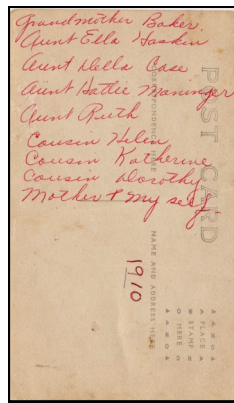 Grandmother Baker.
Aunt Ella Haskin
Aunt Della Case
Aunt Hattie Maninger
Aunt Ruth
Cousin Helen
Cousin Katherine
Cousin Dorothy
Mother & My self.
1910
POST CARD
CORRESPONDENCE HERE
NAME AND ADDRESS HERE
PLACE
STAMP
HERE